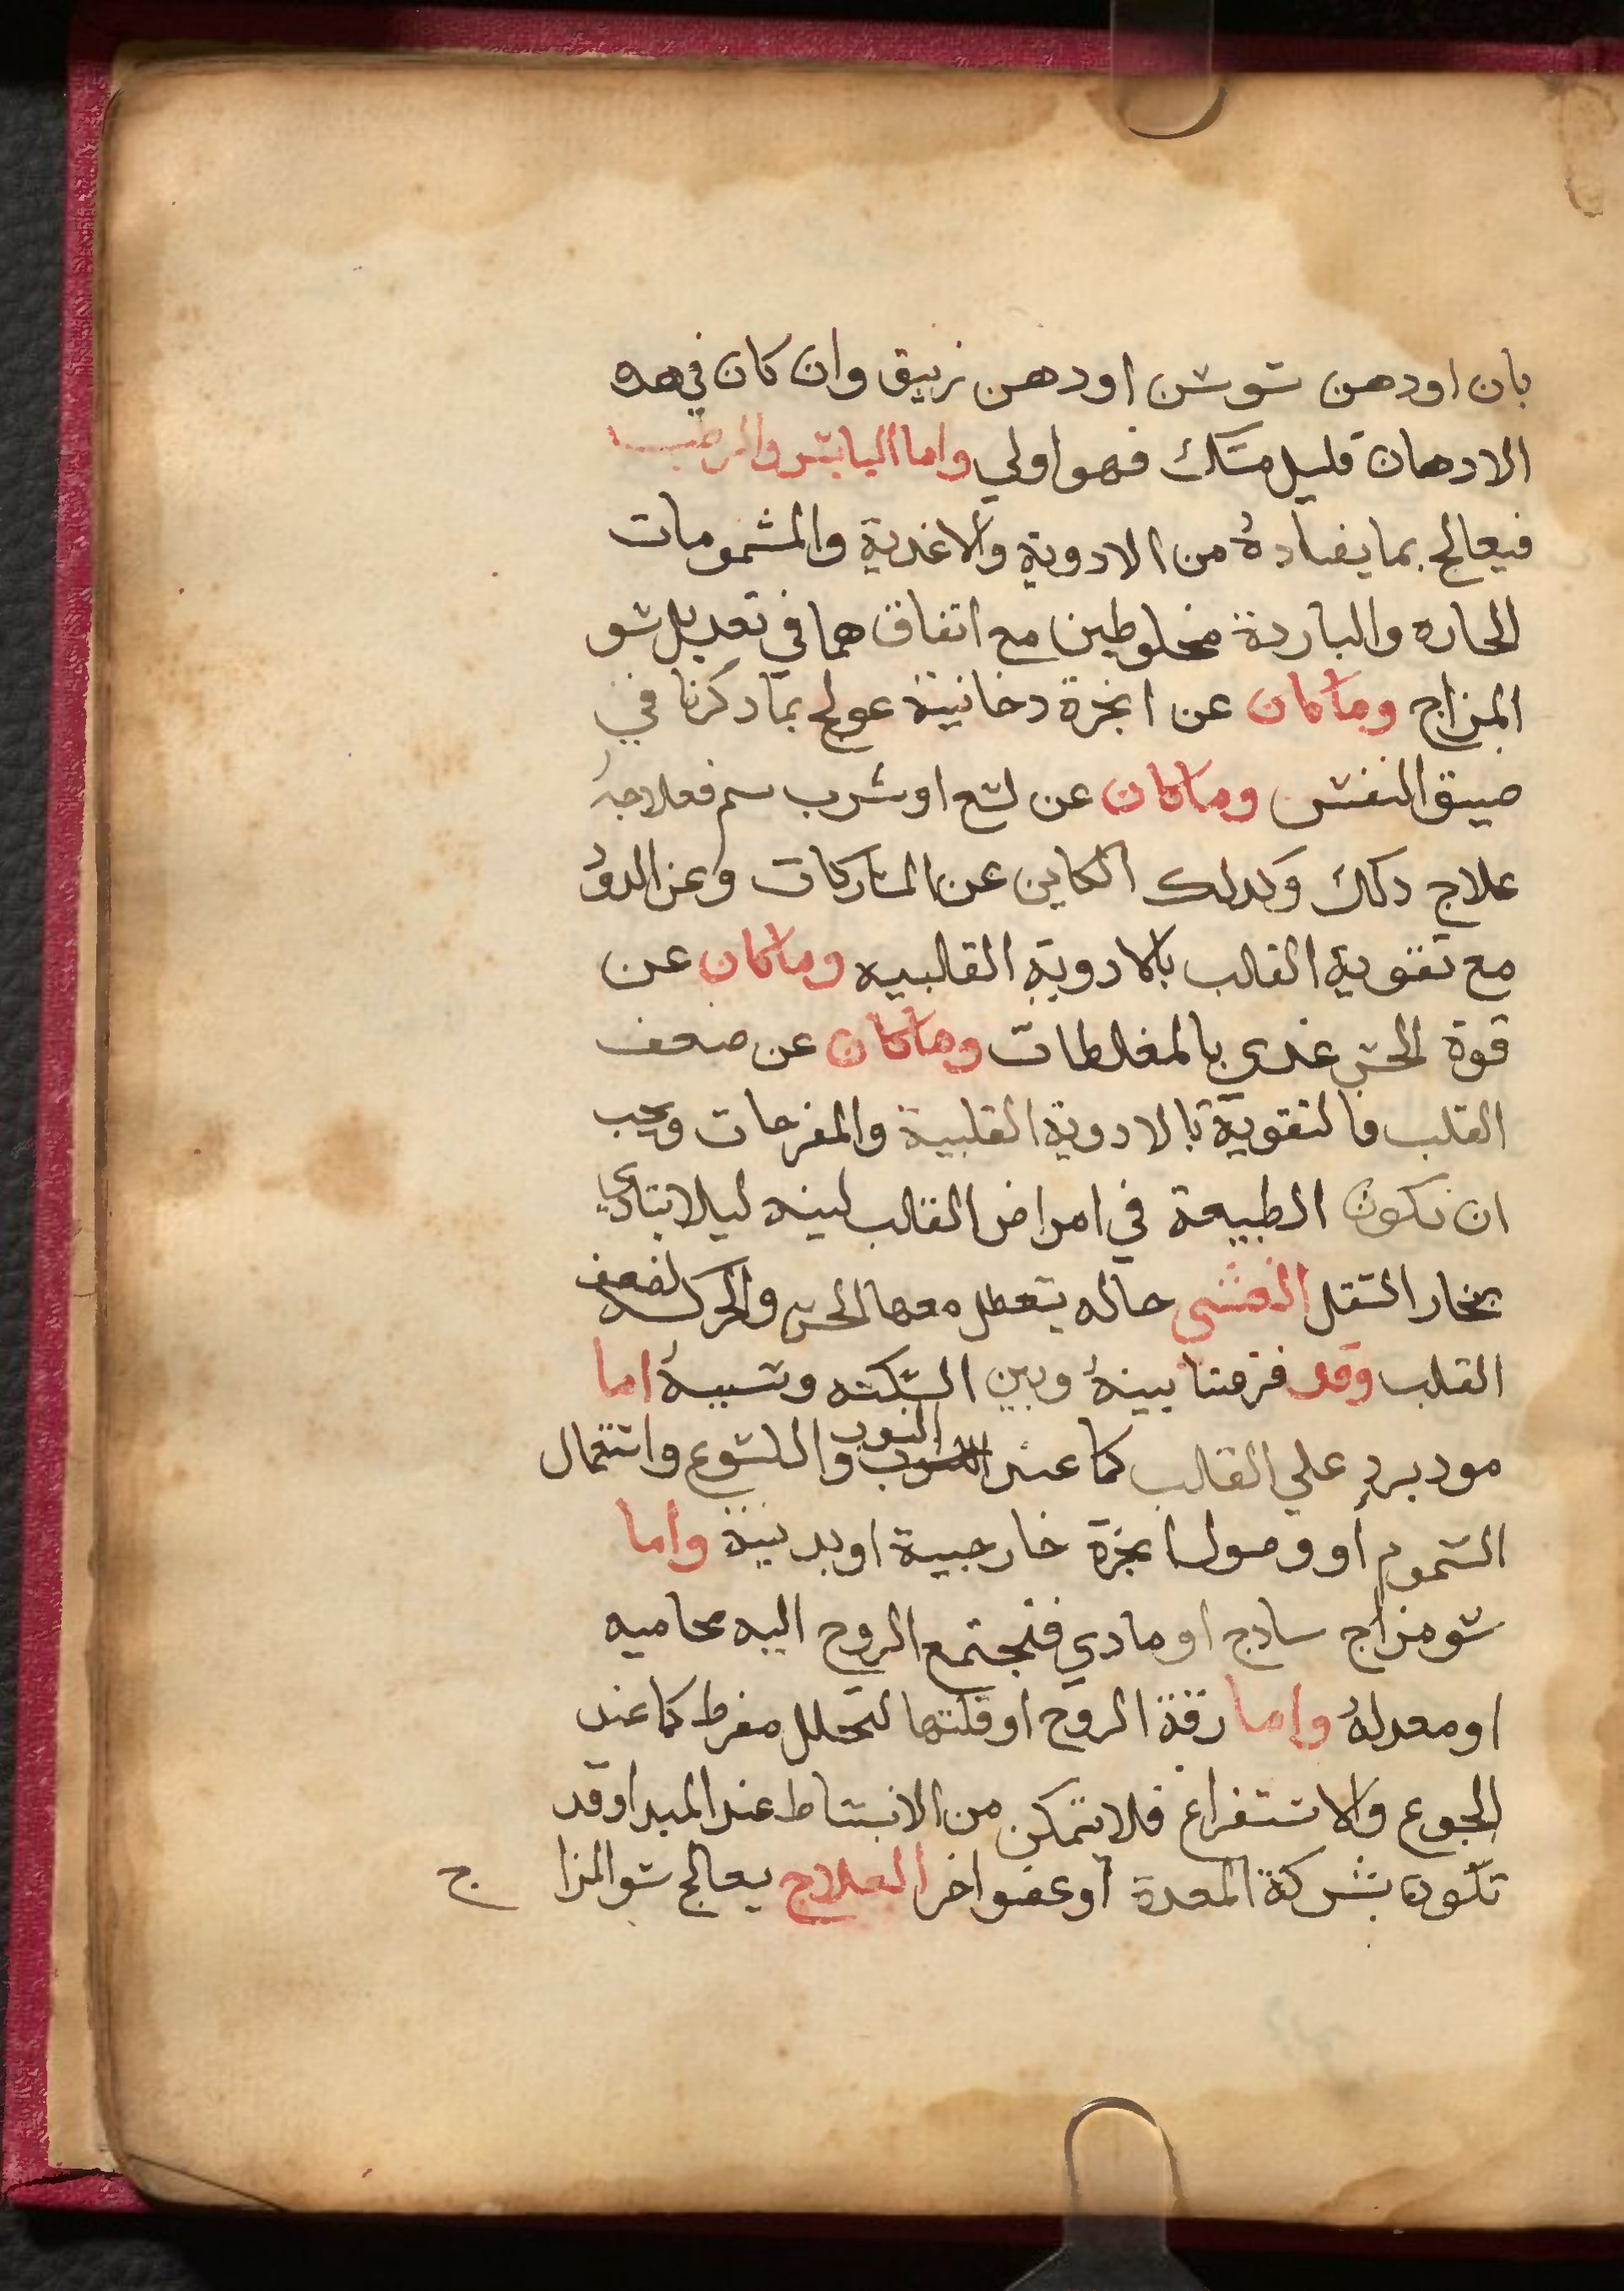 بان اودهن سوسن اودهن زنبق وان كان في هده
الادهان قليل مسك فهو اولي واما اليابس والرطب
فيعالج بما يضادهُ من الادوية والاغدية والمشمومات
الحاره والباردة مخلوطين مع اتفاق هما في تعديل سو
المزاج وما كان عن ابخرة دخانية عولج بما دكرنا في
ضيق النفس وما كان عن لسع او شرب سم فعلاجهُ
علاج دلك وكدلك الكاين عن المشاركات وعن الدود
مع تقوية القلب بالادوية القلبيه وما كان عن
قوة الحس غدي بالمغلطات وما كان عن ضعف
القلب فالتقوية بالادوية القلبية والمفرحات ويجب
ان تكون الطبيعة في امراض القلب لينه ليلا يتادي
بخار التقل الغشي حاله يتعطل معها الحس والحركه لضعف
القلب وقد فرقنا بينهُ وبين السكته وسببهُ اما
مود يرد علي القلب كما عند النوب واللسوع واستعمال
السموم او وصول ابخرة خارجية او بدنية واما
سو مزاج سادج او مادي فتجتمع الروح اليه محاميه
او معدلهُ واما رقة الروح او قلتها لتحلل مفرط كما عند
الجوع والاستفراغ فلا تتمكن من الانبساط عند المبدا وقد
تكون بشركة المعدة او عضو اخر العلاج يعالج سو المزاج